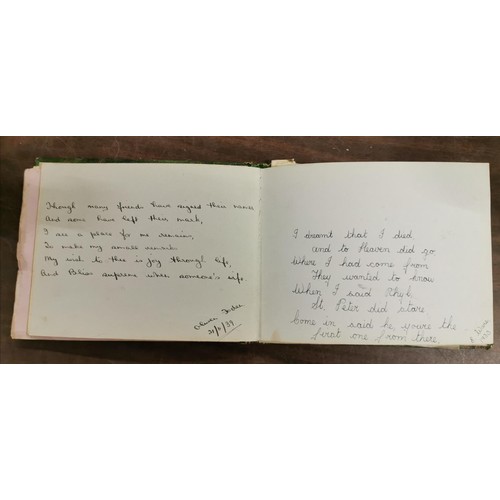 Though many friends have signed their names
And some have left their mark,
I see a place for me remain,
To make my
My wish to thee is joy through life,
And Bliss supreme when someone's wife.
31/ /39
I dreamt that I died
and to Heaven did go
Where I had come from
They wanted to know
When I said Rhyl.
St. Peter did stare
Come in said he, youre the
first one from there.